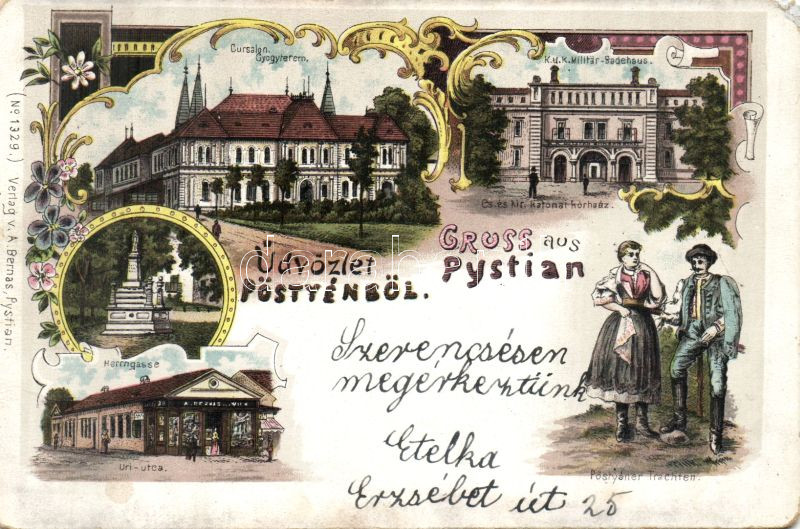 Cursalon.
Gyogyterem.
K.u.K. Militär-Badehaus.
Cs. és kir. Katonai kórház.
(No 1329.) Verlag v. A. Bernas, Pystian.
GRUSS aus
Pystian
Üdvözlet
PÖSTYÉNBÖL.
Herrngasse
A. BERNAS
Uri-utca.
Pöstyéner Trachten.
Szerencsésen
megérkeztünk
Etelka
Erzsébet út 25